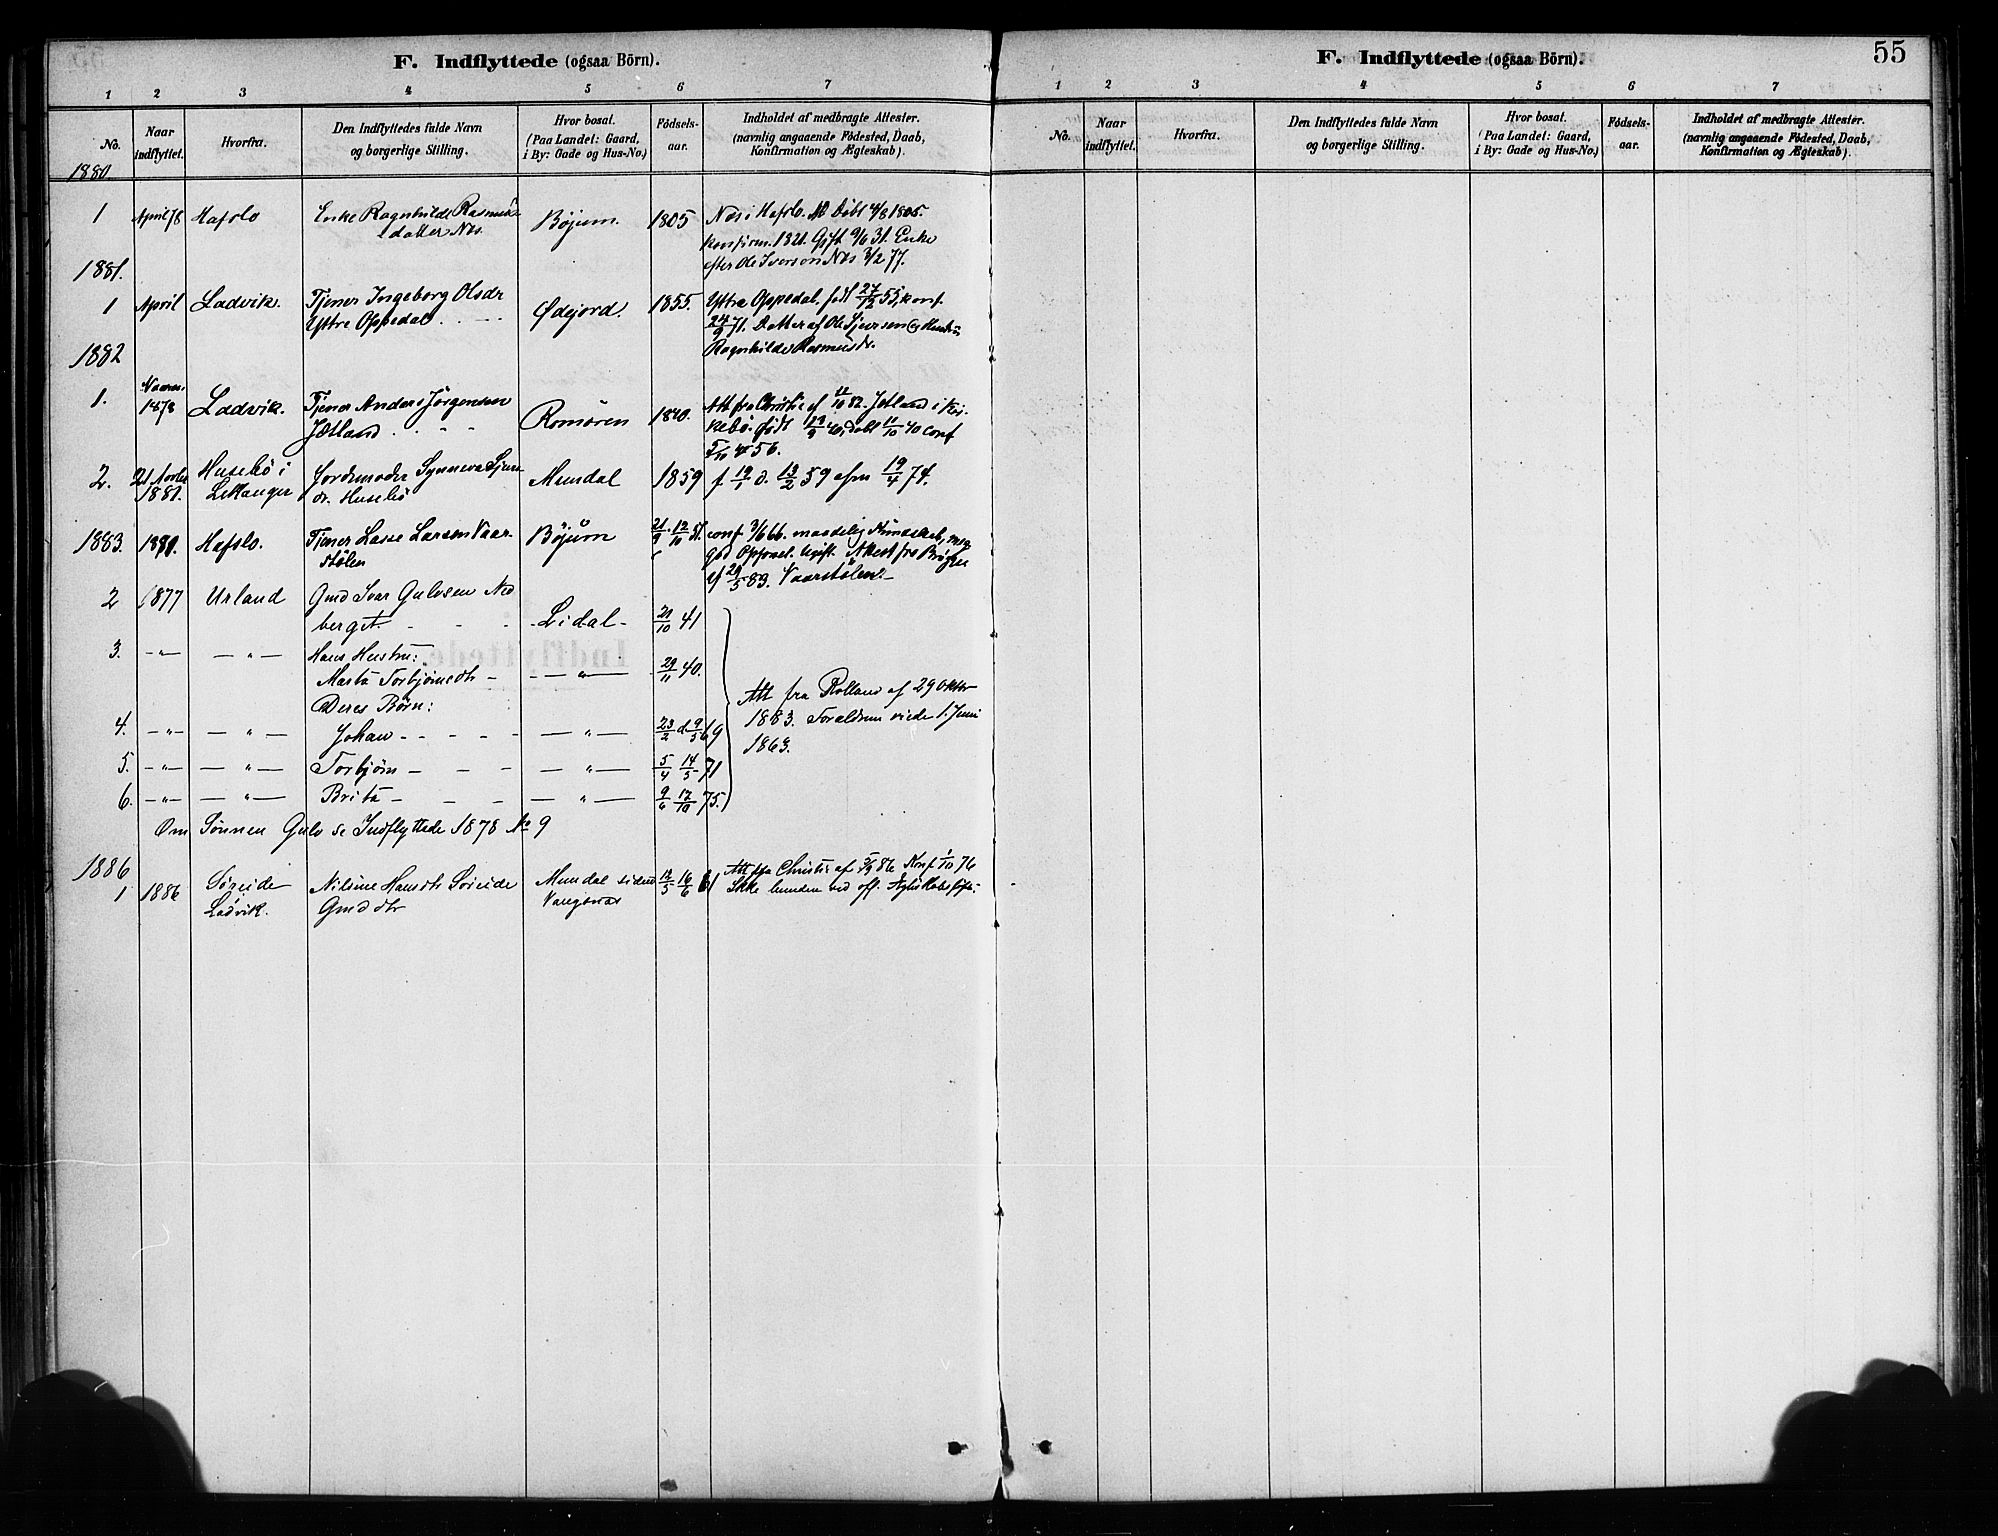 F. Indflyttede (ogsaa Börn).
1 2 3 4 5 6 7
No. Naar indflyttet. Hvorfra. Den Indflyttedes fulde Navn og borgerlige Stilling. Hvor bosat. (Paa Landet: Gaard, i By: Gade og Hus-No.) Fødsels-aar. Indholdet af medbragte Attester. (navnlig angaaende Fødested, Daab, Konfirmation og Ægteskab).
1880.
1 April 78 Hafslo Enke Ragnhilde Rasmus- Böjum. 1805 Næs i Hafslo. Döbt 4/8 1805.
datter Næs. konfirm. 1821. Gift 9/6 31. Enke
efter Ole Iverson Næs 3/2 77.
1881.
1 April Ladvik. Tjener Ingeborg Olsdr Ødejord. 1855. Yttre Oppedal. født 27/12 55, konf.
Yttre Oppedal 24/9 71. Datter af Ole Sjursen og
Ragnhilde Rasmusdr.
1882
1. 1878 Ladvik. Tjener Anders Jörgensen Romören 1840. Att. fra Christie af 11/10 82. Jetland i
Jetland födt 13/9 40, döbt 11/10 40 conf
56.
2. 21 Novbr 1881. Husebö i Leikanger Jordemoder Synneva Sjurs- Mundal 1859 f. 19/1 d. 13/2 59 cfm 19/4 74.
dr. Husebö
1883. Hafslo. Tjener Lasse Larsen Vaar- Böjum 21/9 12/10 51. conf 3/6 66. maadelig Kundskab, men
stölen god Opførsel. Ugift. Attest fra
af 29/5 83. Vaarstölen.
2 1877 Urland Gmd Ivar Gulvsen Ned
berget - - - Lidal - 21/10 41
3. -"- -"- Hans Hustru:
Marta Torbjörnsdtr - -"- 29/11 40.
Deres Börn: Att fra Rolland af 29 Oktbr
4. -"- -"- Johan - - - - -"- 23/2 d 9/5 69 1883. Foraldrene viede 1. Juni
1863.
5. -"- -"- Torbjörn - - - -"- 5/4 14/5 71
6. -"- -"- Brita - - - -"- 9/6 12/10 75.
Om Sönnen Gulv se Indflyttede 1878 No 9
1886
1 1886 Söreide Nilsine Hansdtr Söreide Mundal siden 12/5 16/6 61 Att fra Christie af 5/9 86 Konf 1/10 76
Ladvik. Gmd dtr Vangsnæs Ikke bunden ved off.
F. Indflyttede (ogsaa Börn). 55
1 2 3 4 5 6 7
No. Naar indflyttet. Hvorfra. Den Indflyttedes fulde Navn og borgerlige Stilling. Hvor bosat. (Paa Landet: Gaard, i By: Gade og Hus-No.) Fødsels-aar. Indholdet af medbragte Attester. (navnlig angaaende Fødested, Daab, Konfirmation og Ægteskab).